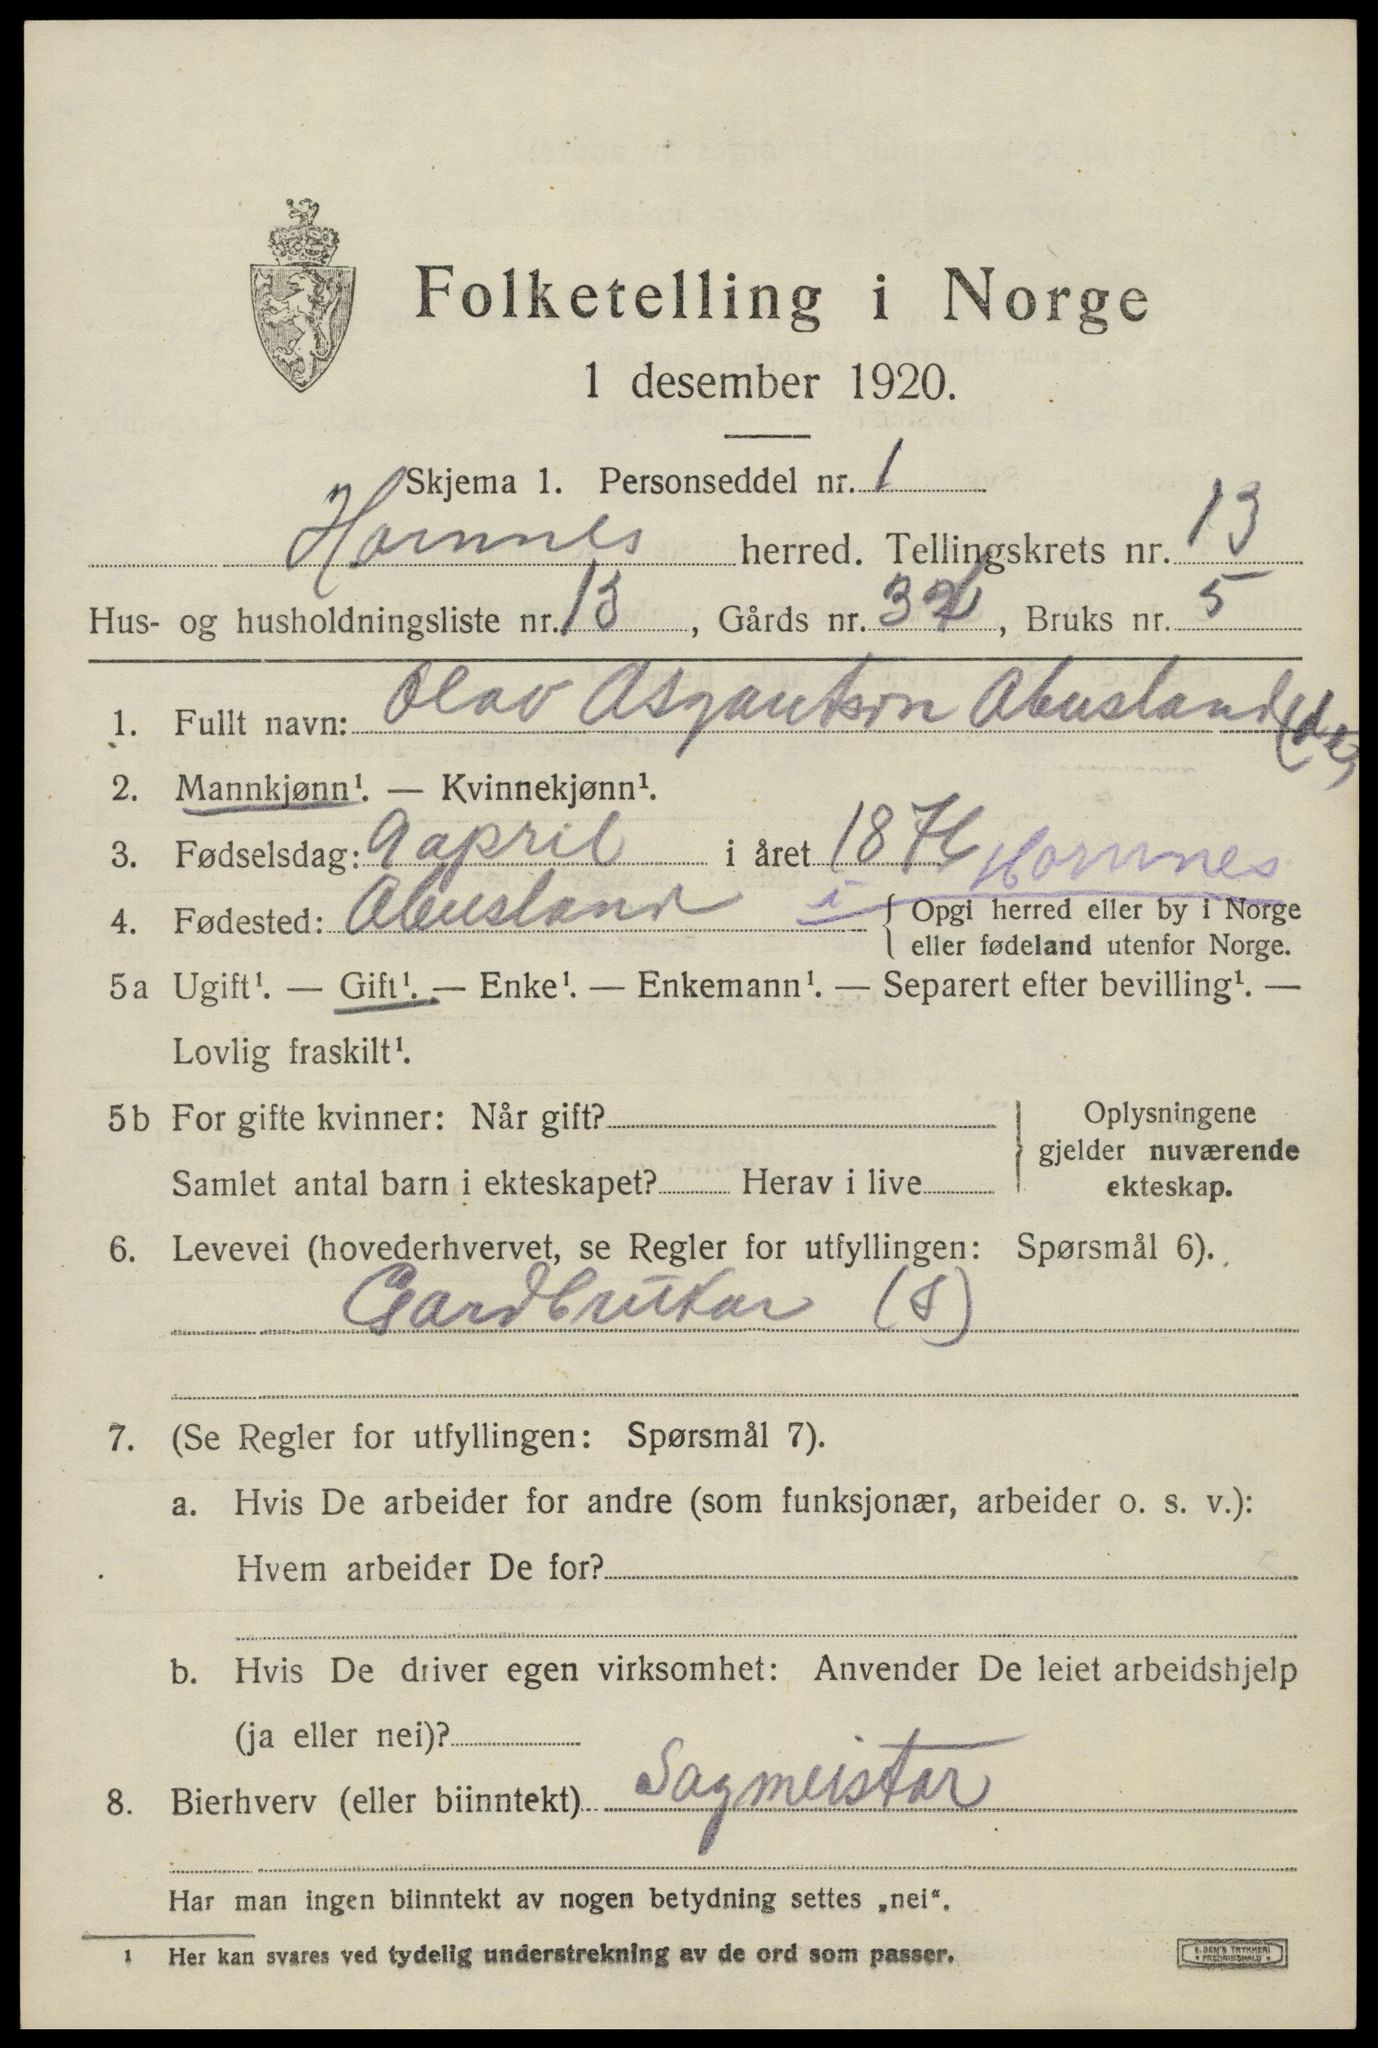 Folketelling i Norge
1 desember 1920.
Skjema 1. Personseddel nr. 1
Hornnes herred. Tellingskrets nr. 13
Hus- og husholdningsliste nr. 13, Gårds nr. 32, Bruks nr. 5
1. Fullt navn: Olav Asgautson Abusland
2. Mannkjønn¹. — Kvinnekjønn¹.
3. Fødselsdag: 9 april i året 1876
4. Fødested: Abusland i Hornnes { Opgi herred eller by i Norge
eller fødeland utenfor Norge.
5a Ugift¹. — Gift¹. — Enke¹. — Enkemann¹. — Separert efter bevilling¹. —
Lovlig fraskilt¹.
5b For gifte kvinner: Når gift?
Samlet antal barn i ekteskapet? Herav i live
Oplysningene
gjelder nuværende
ekteskap.
6. Levevei (hovederhvervet, se Regler for utfyllingen: Spørsmål 6).
Gardbrukar (S)
7. (Se Regler for utfyllingen: Spørsmål 7).
a. Hvis De arbeider for andre (som funksjonær, arbeider o. s. v.):
Hvem arbeider De for?
b. Hvis De driver egen virksomhet: Anvender De leiet arbeidshjelp
(ja eller nei)?
8. Bierhverv (eller biinntekt) Sagmeistar
Har man ingen biinntekt av nogen betydning settes „nei“.
¹ Her kan svares ved tydelig understrekning av de ord som passer.
E. SEM'S TRYKKERI
FREDRIKSHALD